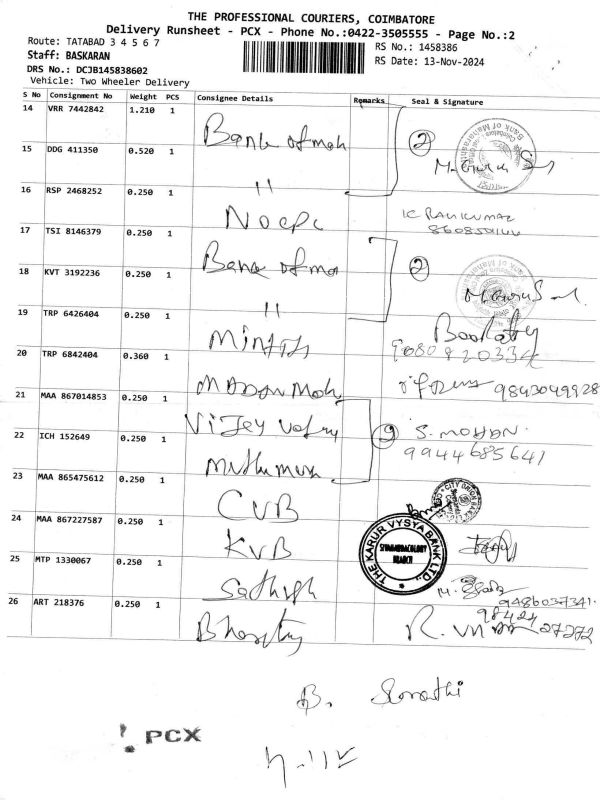 THE PROFESSIONAL COURIERS, COIMBATORE
Delivery Runsheet - PCX - Phone No.:0422-3505555 - Page No.:2
Route: TATABAD 3 4 5 6 7
RS No.: 1458386
Staff: BASKARAN
RS Date: 13-Nov-2024
DRS No.: DCJB145838602
Vehicle: Two Wheeler Delivery
S No Consignment No Weight PCS Consignee Details Remarks Seal & Signature
14 VRR 7442842 1.210 1 Bank of mah
15 DDG 411350 0.520 1 " 2
16 RSP 2468252 0.250 1 NOCPC K RAVIKUMAR
17 TSI 8146379 0.250 1 Bank of ma
18 KVT 3192236 0.250 1 " 2
19 TRP 6426404 0.250 1
20 TRP 6842404 0.360 1 MADAN Moh 9843049928
21 MAA 867014853 0.250 1 VIJEY
22 ICH 152649 0.250 1 2 S. MOHAN
9944685641
23 MAA 865475612 0.250 1 CVB
24 MAA 867227587 0.250 1 KVB
THE KARUR VYSYA BANK LTD.,
SIVANANDACOLONY
BRANCH
25 MTP 1330067 0.250 1 Sathish 9486037341
26 ART 218376 0.250 1 Bharathy
B.
PCX